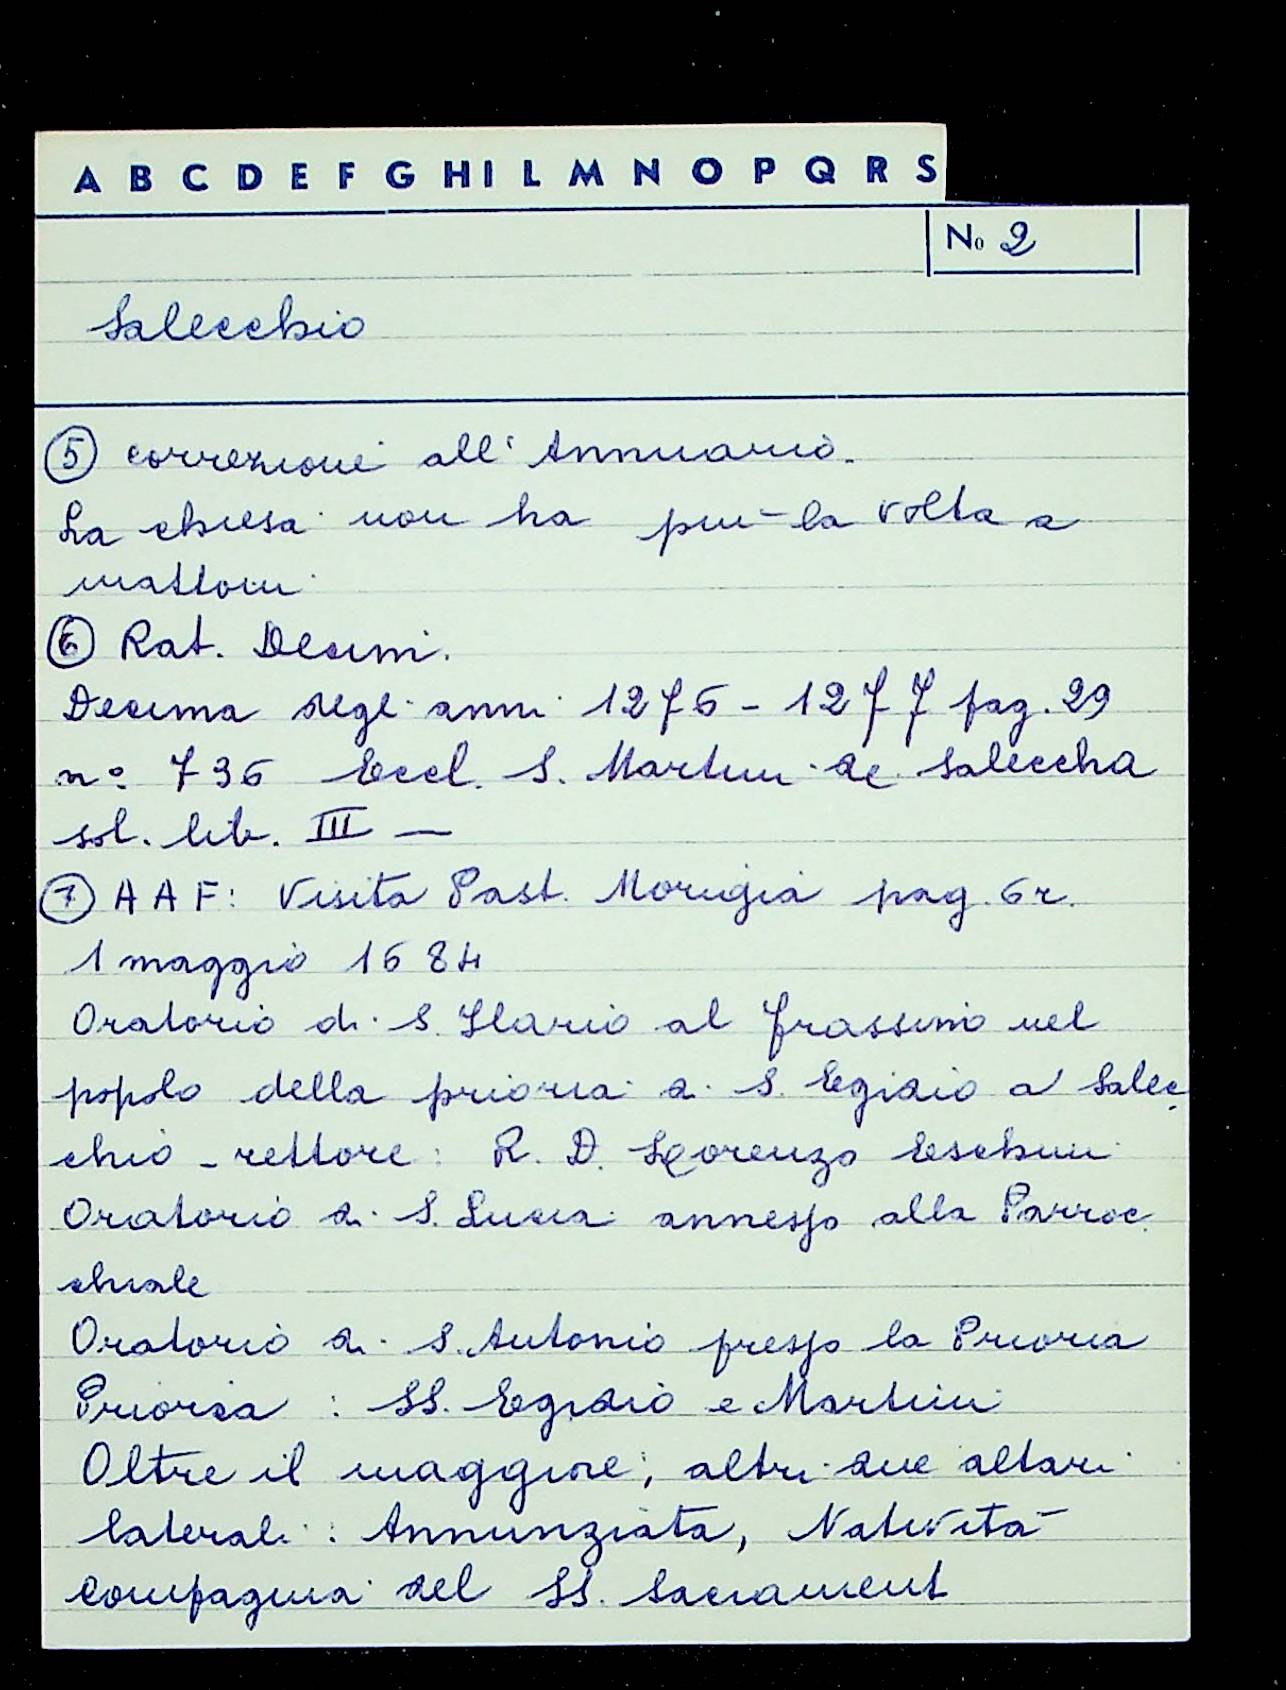 A B C D E F G H I L M N O P Q R S
No 2
Salecchio
⑤ correzioni all'Annuario.
La chiesa non ha più la volta a
mattoni
⑥ Rat. Decim.
Decima degli anni 1276-1277 pag. 29
n° 736 Eccl. S. Martini de Salecchia
sol. lib. III —
⑦ A A F: Visita Past. Morigia pag. 6r.
1 maggio 1684
Oratorio di S. Ilario al frassino nel
popolo della prioria di S. Egidio a Salec
chio - rettore: R. D. Lorenzo Eschini
Oratorio di S. Lucia annesso alla Parroc
chiale
Oratorio di S. Antonio presso la Prioria
Prioria : SS. Egidio e Martini
Oltre il maggiore, altri due altari
laterali : Annunziata, Natività
Compagnia del SS. Sacrament